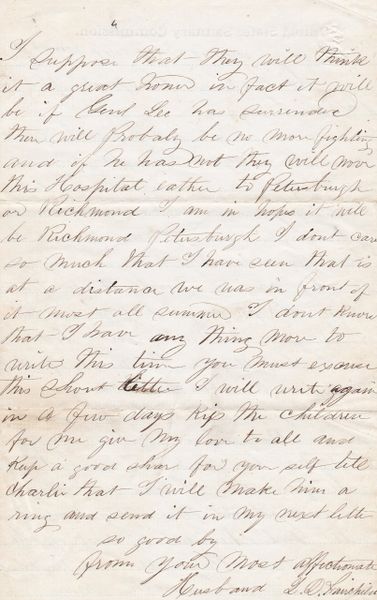 I suppose that they will think
it a great honer in fact it will
be if Genl Lee has surrended
then will Probaly be no more fighting
and if he has not they will move
this Hospital eather to Petersburgh
or Richmond I am in hopes it will
be Richmond Petersburgh I dont care
so much that I have seen that is
at a distance we was in front of
it most all summer I dont know
that I have any thing more to
write this time you must excuse
this short letter I will write again
in a few days kiss the children
for me give my love to all and
keep a good shar for your self tell
Charlie that I will make him a
ring and send it in my next lette
so good by
from your most affectionate
Husband L. D. Fairchild